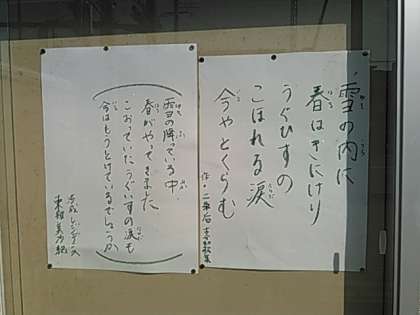 雪の内に
春はきにけり
うぐひすの
こほれる涙
今やとくらむ
作・二条后
雪の降っている中、
春がやってきました
こおっていたうぐいすの涙も
今はもうとけているでしょうか